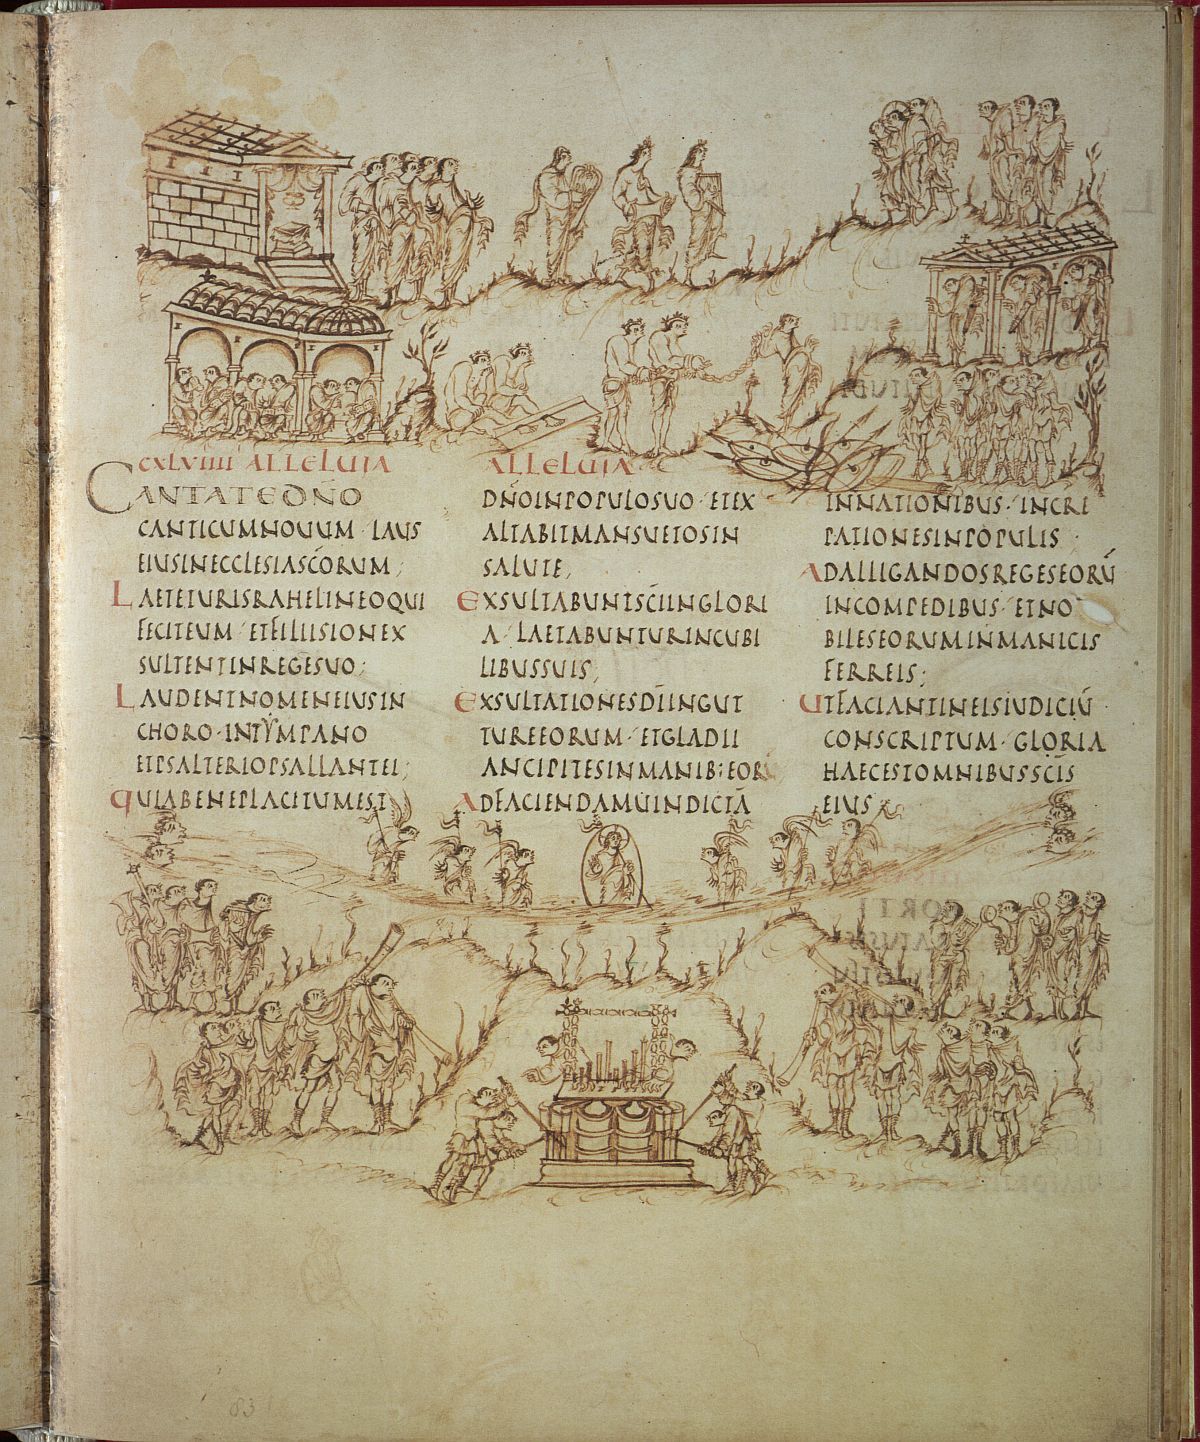 CXLVIIII ALLELUIA
CANTATE DNO
CANTICUM NOUUM · LAUS
EIUS IN ECCLESIA SCORUM;
LAETETUR ISRAHEL IN EO QUI
FECIT EUM · ET FILII SION EX
SULTENT IN REGE SUO;
LAUDENT NOMEN EIUS IN
CHORO · IN TYMPANO
ET PSALTERIO PSALLANT EI;
QUIA BENEPLACITUM EST
ALLELUIA
DNO IN POPULO SUO · ET EX
ALTABIT MANSUETOS IN
SALUTE;
EXSULTABUNT SCI IN GLORI
A · LAETABUNTUR IN CUBI
LIBUS SUIS;
EXSULTATIONES DI IN GUT
TURE EORUM · ET GLADII
ANCIPITES IN MANIB; EOR
AD FACIENDAM UINDICTA
IN NATIONIBUS · INCRE
PATIONES IN POPULIS;
AD ALLIGANDOS REGES EORU
IN COMPEDIBUS · ET NO
BILES EORUM IN MANICIS
FERREIS;
UT FACIANT IN EIS IUDICIU
CONSCRIPTUM · GLORIA
HAEC EST OMNIBUS SCIS
EIUS
83